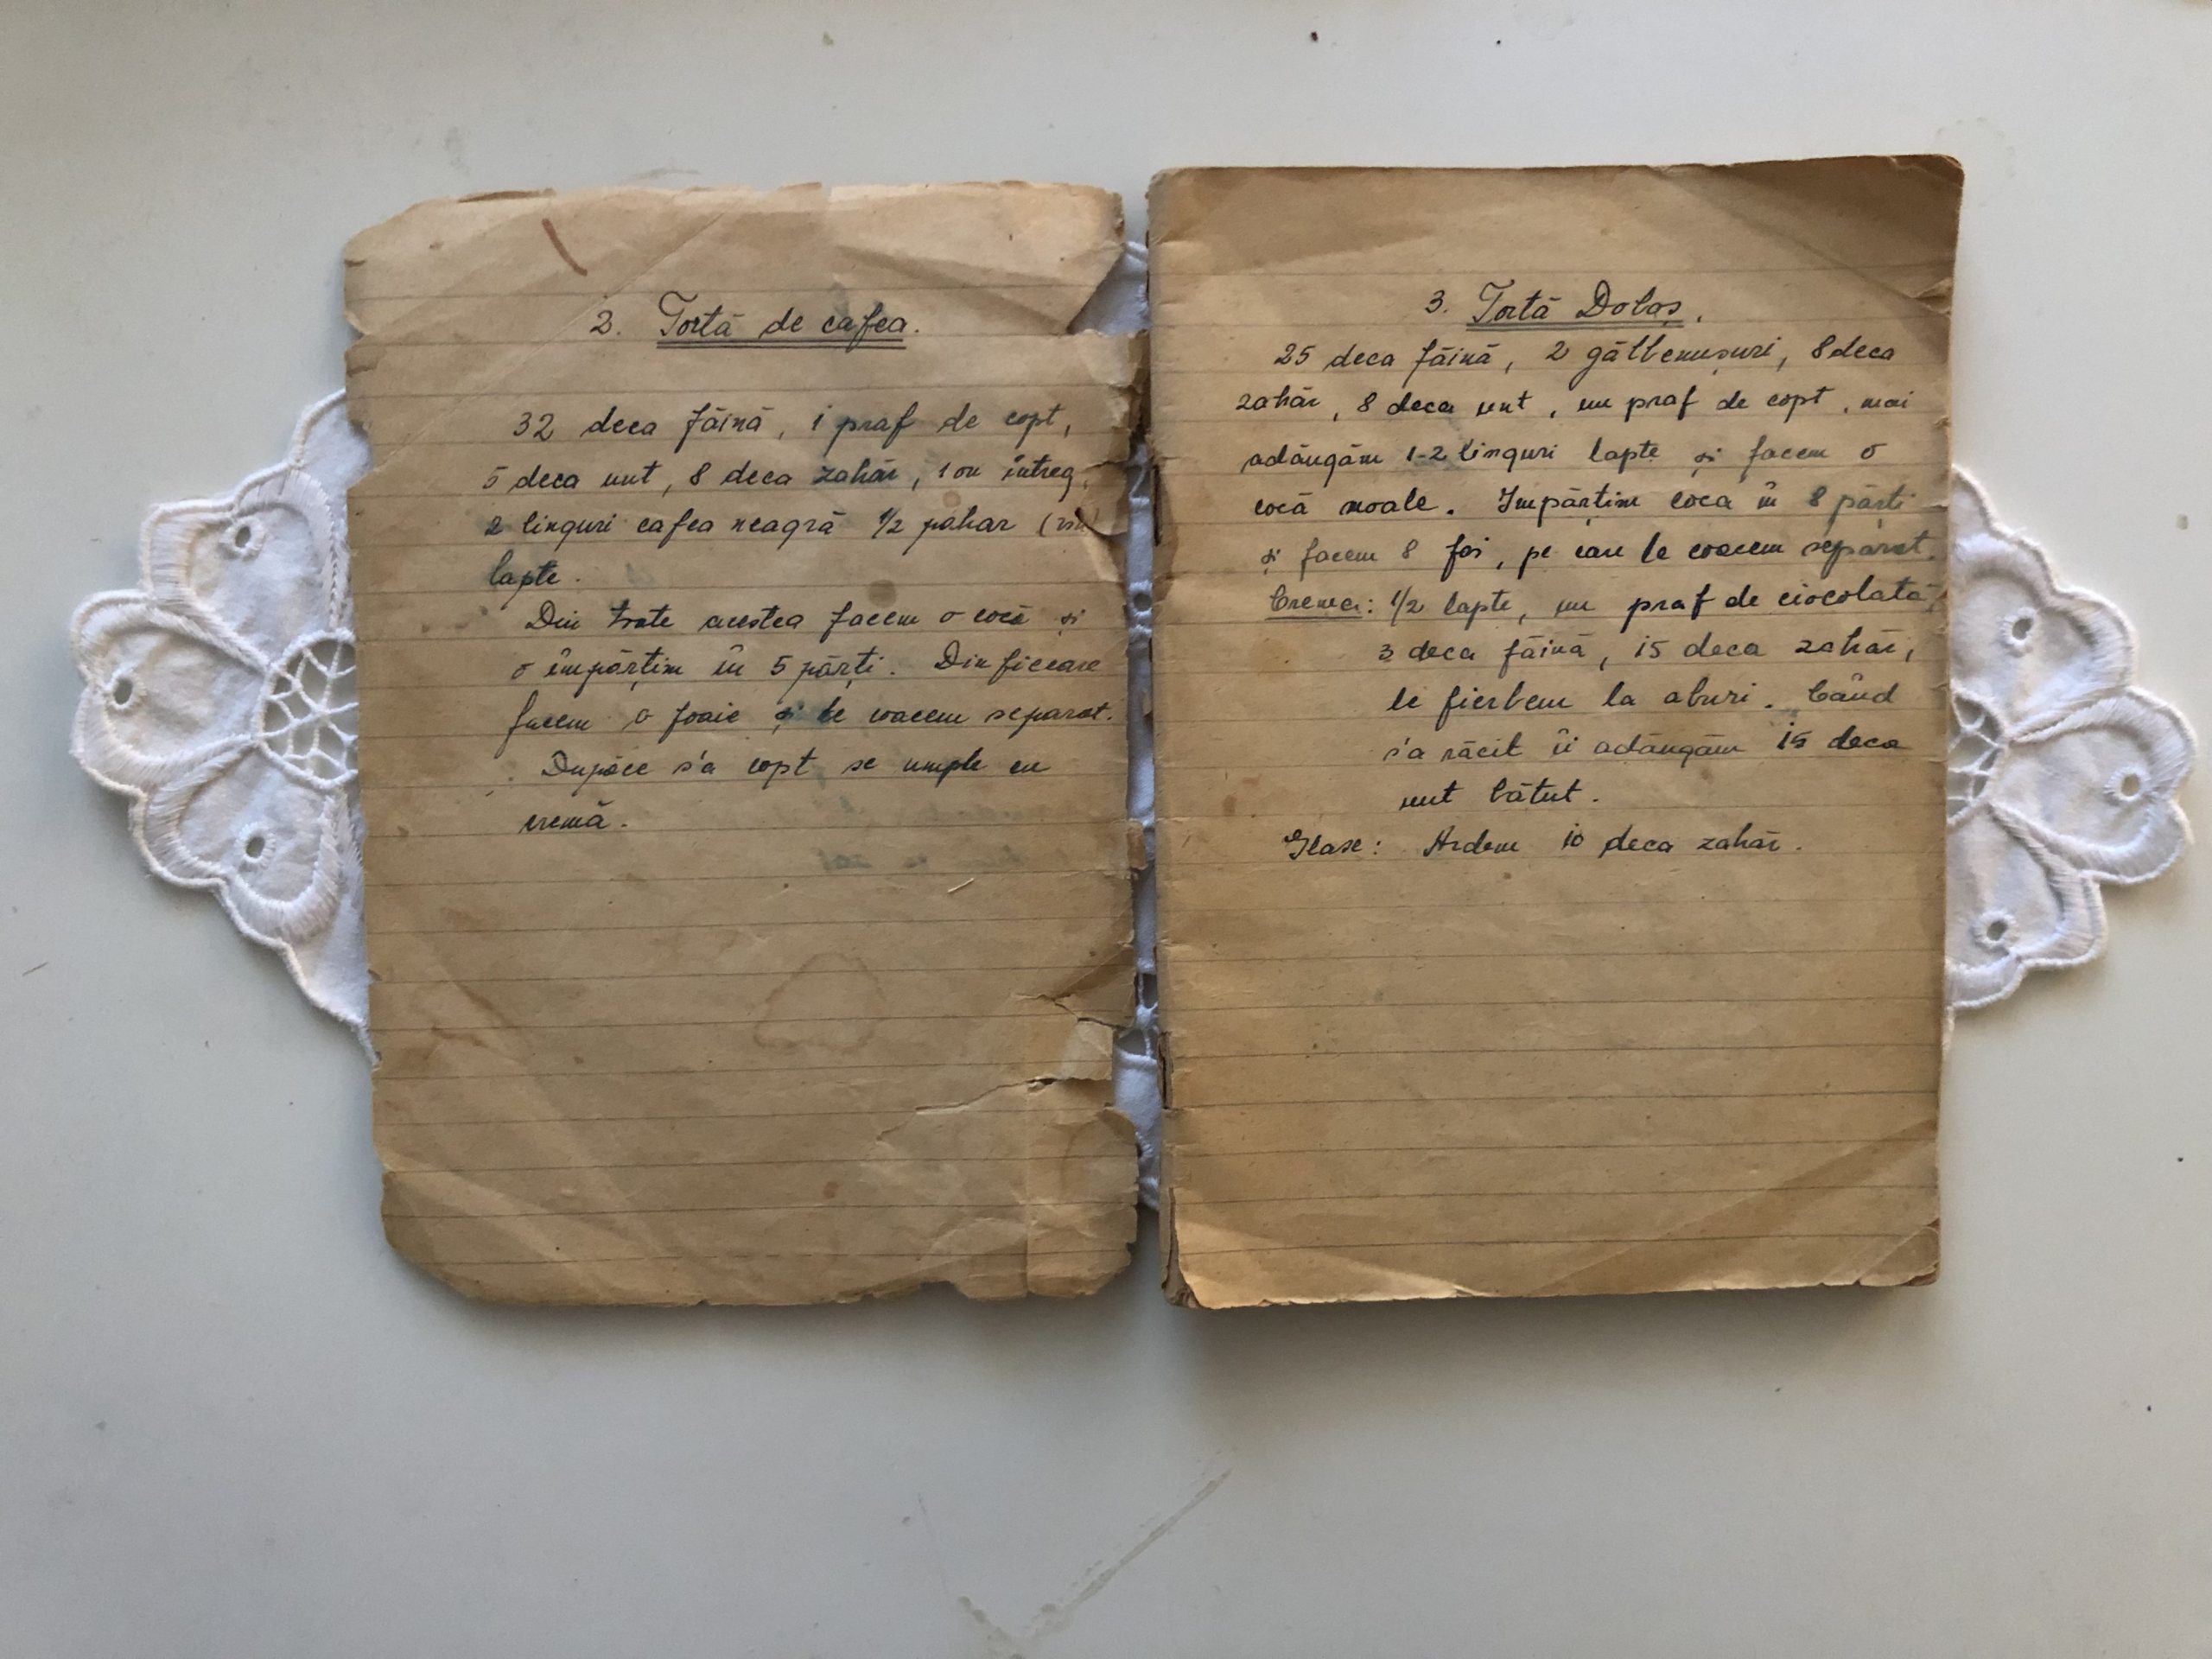 2. Tortă de cafea.
32 deca făină, 1 praf de copt,
5 deca unt, 8 deca zahăr, 1 ou întreg,
2 linguri cafea neagră 1/2 pahar
lapte.
Din toate acestea facem o cocă și
o împărțim în 5 părți. Din fiecare
facem o foaie și le coacem separat.
Dupăce s'a copt se umple cu
cremă.
3. Tortă Dobaș.
25 deca făină, 2 gălbenușuri, 8 deca
zahăr, 8 deca unt, un praf de copt, mai
adăugăm 1-2 linguri lapte și facem o
cocă moale. Impărțim coca în 8 părți
și facem 8 foi, pe care le coacem separat.
Crema: 1/2 lapte, un praf de ciocolată,
3 deca făină, 15 deca zahăr,
le fierbem la aburi. Când
s'a răcit îi adăugăm 15 deca
unt bătut.
Glase: Ardem 10 deca zahăr.